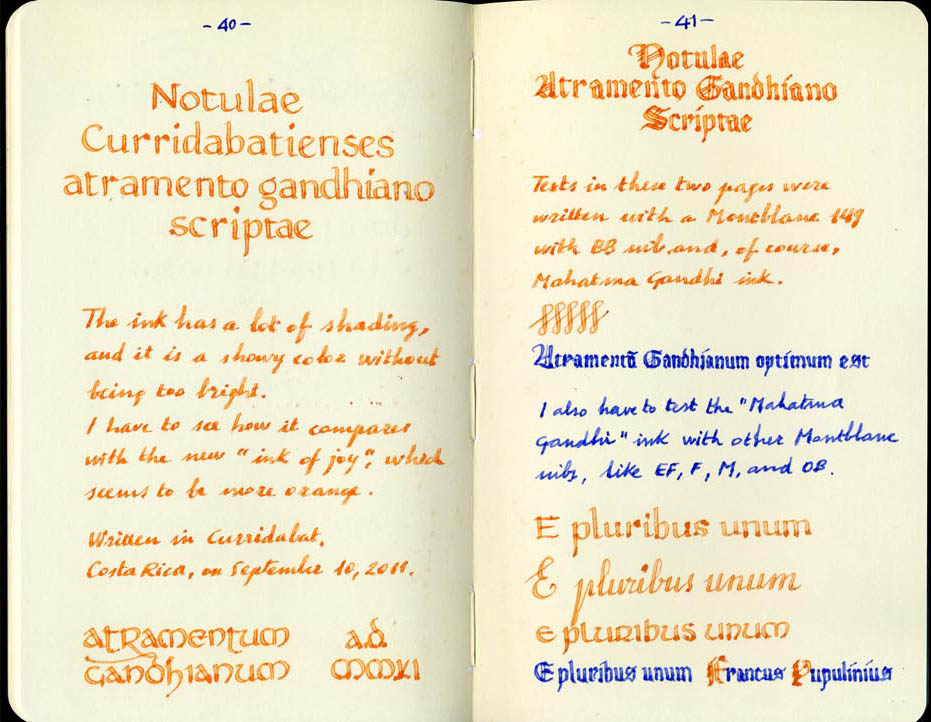 - 40 -
Notulae
Curridabatienses
atramento gandhiano
scriptae
The ink has a lot of shading,
and it is a showy color without
being too bright.
I have to see how it compares
with the new "ink of joy", which
seems to be more orange.
Written in Curridabat,
Costa Rica, on September 10, 2011.
atramentum a.d.
Gandhianum MMXI
- 41 -
Notulae
Atramento Gandhiano
Scriptae
Texts in these two pages were
written with a Montblanc 149
with BB nib and, of course,
Mahatma Gandhi ink.
Atramentū Gandhianum optimum est
I also have to test the "Mahatma
Gandhi" ink with other Montblanc
nibs, like EF, F, M, and OB.
E pluribus unum
E pluribus unum
e pluribus unum
E pluribus unum Francus Pupulinius